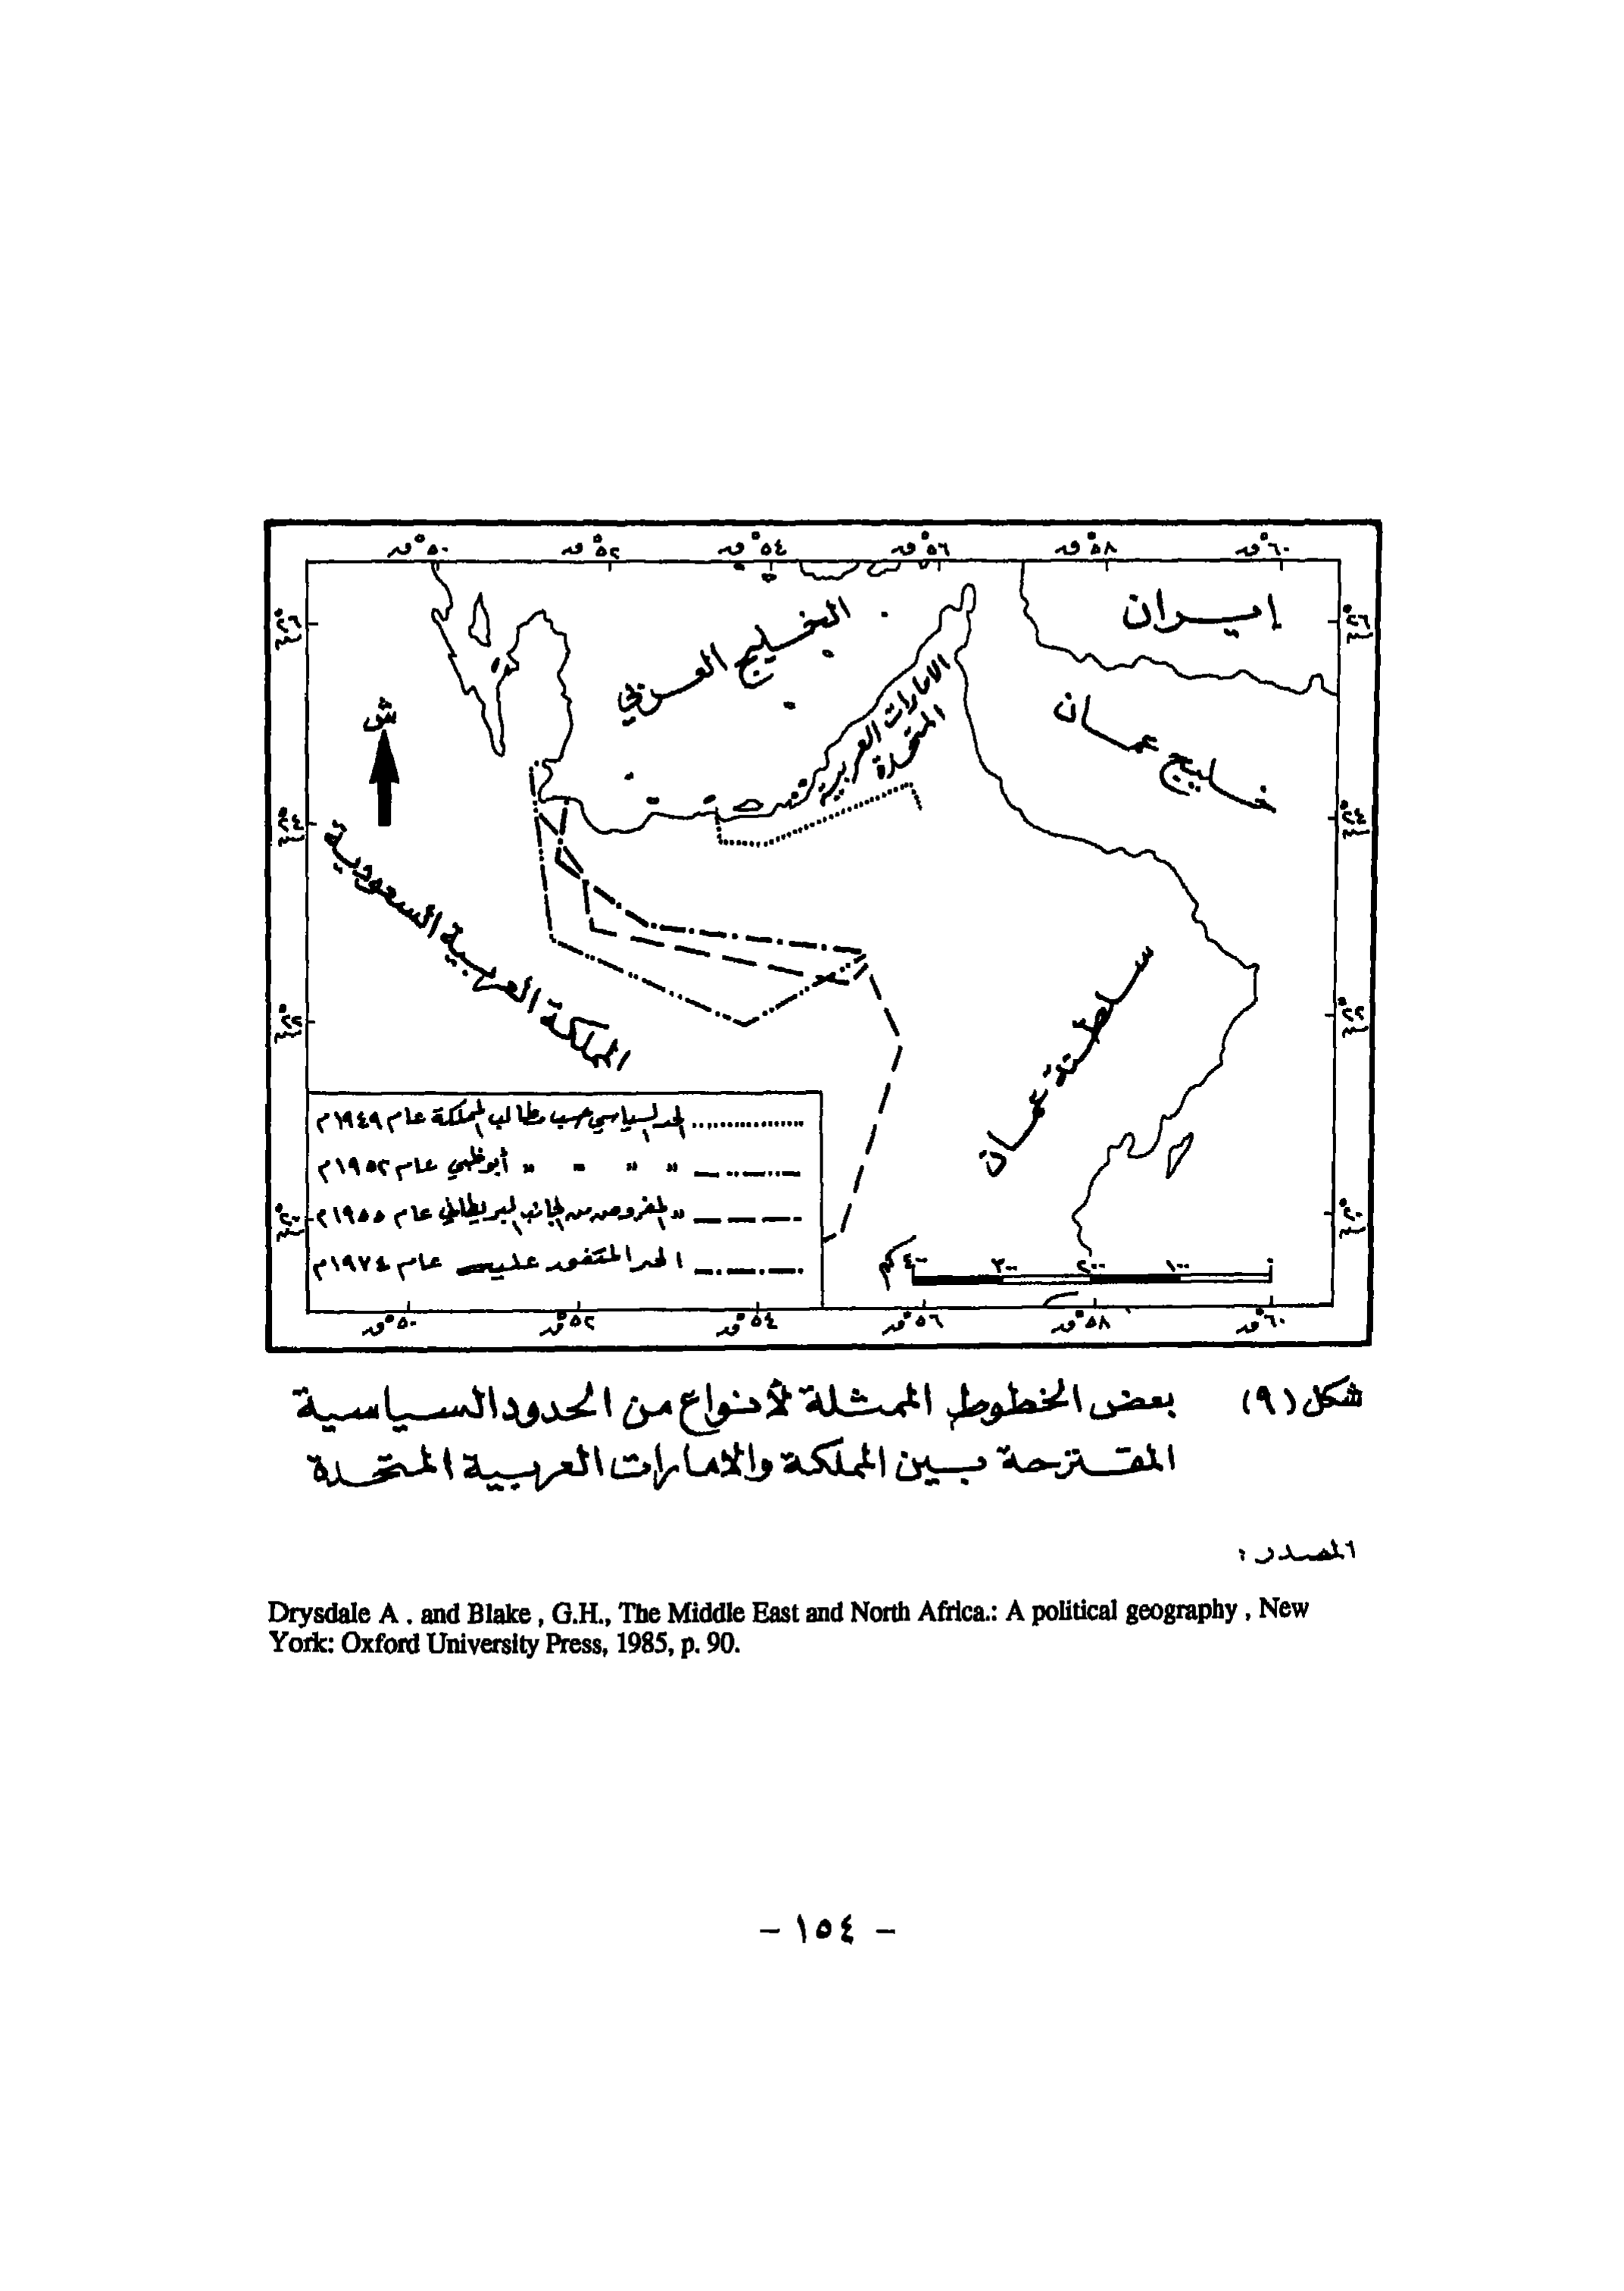 ٥٠°ق ٥٢°ق ٥٤°ق ٥٦°ق ٥٨°ق ٦٠°ق
إيران
الخليج العربي
الامارات العربية
المتحدة
خليج عمان
ش
٢٦° ٢٦°
٢٤° ٢٤°
المملكة العربية السعودية
سلطنة عمان
٢٢° ٢٢°
الحد السياسي حسب مطالب المملكة عام ١٩٤٩م
" " " " أبوظبي عام ١٩٥٢م
" المفروض من الجانب البريطاني عام ١٩٥٥م
الحد المتفق عليه عام ١٩٧٤م
٢٠° ٢٠°
٤٠٠كم ٣٠٠ ٢٠٠ ١٠٠ ٠
٥٠°ق ٥٢°ق ٥٤°ق ٥٦°ق ٥٨°ق ٦٠°ق
شكل (٩) بعض الخطوط الممثلة لأنواع من الحدود السياسية
المقترحة بين المملكة والامارات العربية المتحدة
المصدر :
Drysdale A . and Blake , G.H., The Middle East and North Africa.: A political geography , New
York: Oxford University Press, 1985, p. 90.
- ١٥٤ -